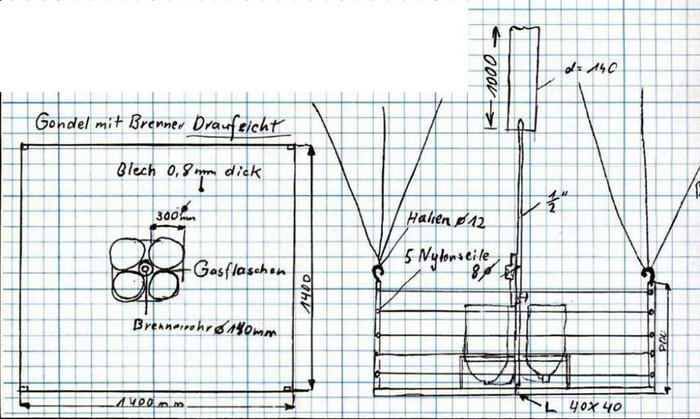 Gondel mit Brenner Draufsicht
Blech 0,8mm dick
300mm
Gasflaschen
Brennerrohr Ø 140mm
1400
1400mm
1000
d=140
1/2"
Haken Ø12
5 Nylonseile
8Ø
L 40x40